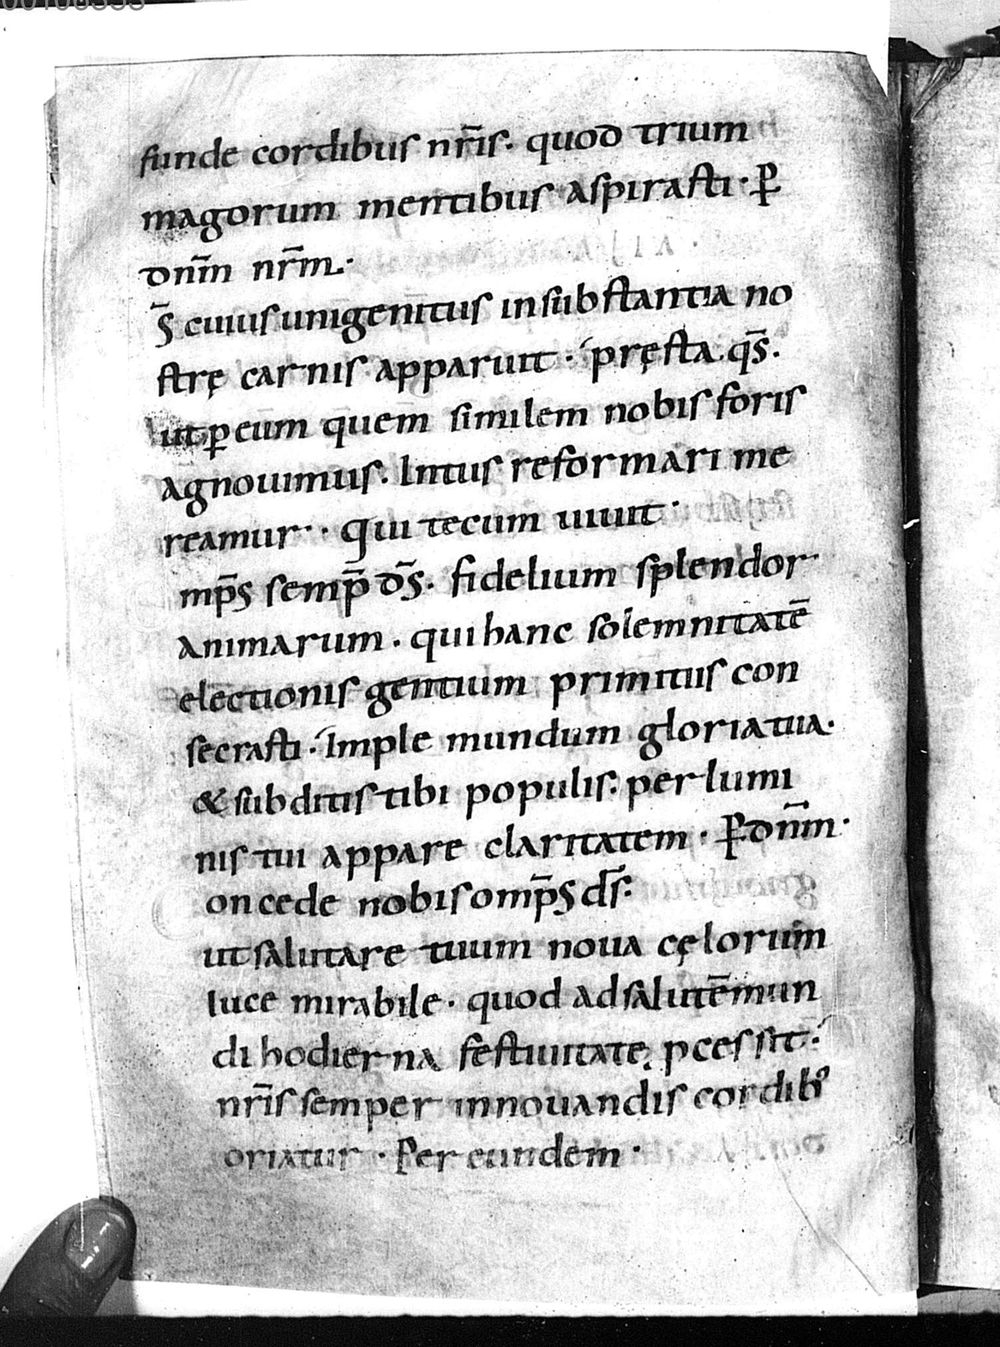 funde cordibus nr̄is. quod trium
magorum mentibus aspirasti. p̄
dnm̄ nr̄m.
S̄ cuius unigenitus in substantia no
strę carnis apparuit. pręsta. qs̄.
ut ꝑ eum quem similem nobis foris
agnouimus. Intus reformari me
reamur. Qui tecum uiuit.
mp̄s semp̄ ds̄. fidelium splendor
animarum. qui hanc solemnitatē
electionis gentium primitus con
secrasti. Imple mundum gloria tua.
& subditis tibi populis. per lumi
nis tui appare claritatem. P̄ dnm̄.
oncede nobis omp̄s ds̄.
ut salutare tuum noua cęlorum
luce mirabile. quod ad salutēmun
di hodierna festiuitatę pcessit.
nr̄is semper innouandis cordib'
oriatur. Per eundem.